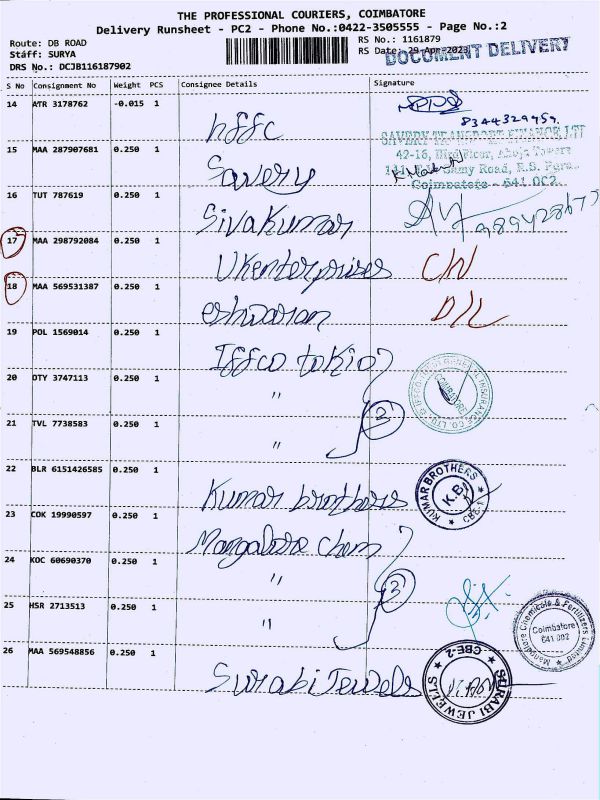 THE PROFESSIONAL COURIERS, COIMBATORE
Delivery Runsheet - PC2 - Phone No.:0422-3505555 - Page No.:2
Route: DB ROAD
RS No.: 1161879
Staff: SURYA
RS Date: 29-Apr-2023
DOCUMENT DELIVERY
DRS No.: DCJB116187902
S No Consignment No Weight PCS Consignee Details Signature
14 ATR 3178762 -0.015 1 hffc
8344329459
15 MAA 287907681 0.250 1 Savery
SAVERY TRANSPORT FINANCE LTD
42-16, IIIrd Floor, Ahuja Towers
Samy Road, R.S. Puram
Coimbatore - 641 002
16 TUT 787619 0.250 1 Sivakumar
17 MAA 298792084 0.250 1 Ukenterprises C/N
18 MAA 569531387 0.250 1 eshwaran D/L
19 POL 1569014 0.250 1 Iffco tokio
20 OTY 3747113 0.250 1 "
3
21 TVL 7738583 0.250 1 "
22 BLR 6151426585 0.250 1 Kumar brothers
KUMAR BROTHERS
K.B.
CBE
23 COK 19990597 0.250 1 Mangalore Chem
24 KOC 60690370 0.250 1 "
3
25 HSR 2713513 0.250 1 "
Mangalore Chemicals & Fertilizers Limited
Coimbatore
641 002
26 MAA 569548856 0.250 1 Surabi Jewels
SURABI JEWELS
CBE-2